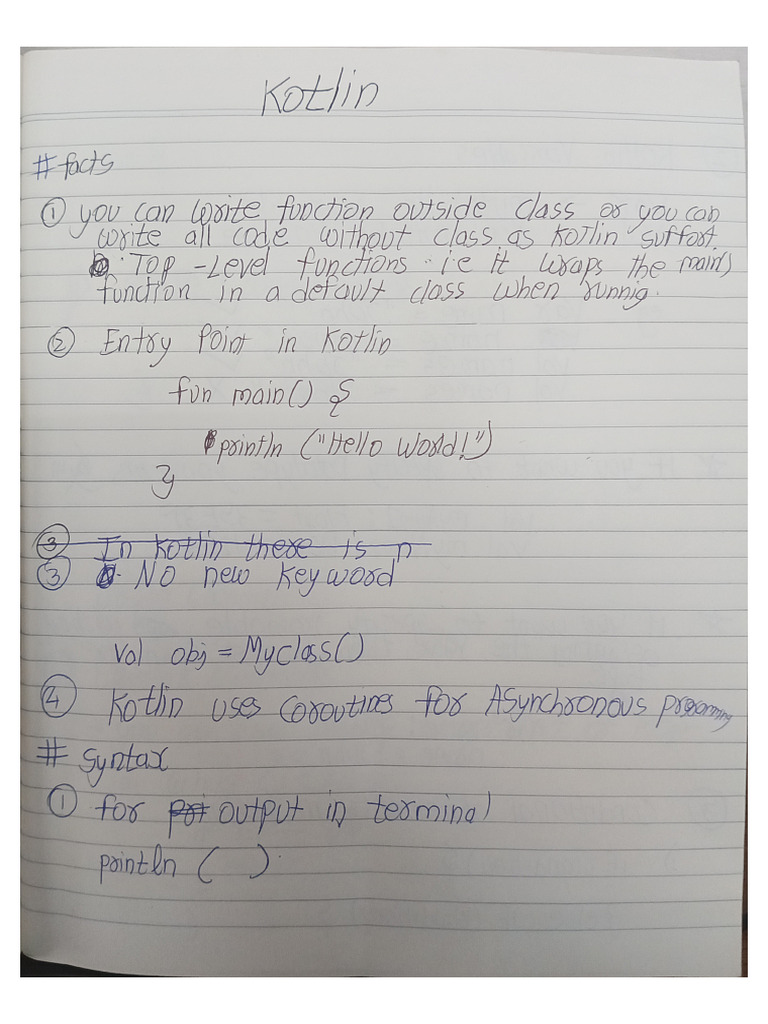 Kotlin
# facts
① you can write function outside class or you can
write all code without class as Kotlin suffort
Top-Level functions. i.e it wraps the main()
function in a default class when runnig.
② Entry Point in Kotlin
fun main() {
println ("Hello World!")
}
③ In kotlin there is n
③ No new keyword
val obj = Myclass()
④ Kotlin uses coroutines for Asynchronous programming
# Syntax
① for pri output in terminal
println ( ).